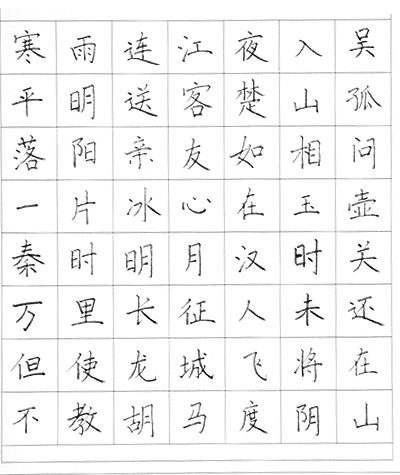 寒雨连江夜入吴
平明送客楚山孤
落阳亲友如相问
一片冰心在玉壶
秦时明月汉时关
万里长征人未还
但使龙城飞将在
不教胡马度阴山